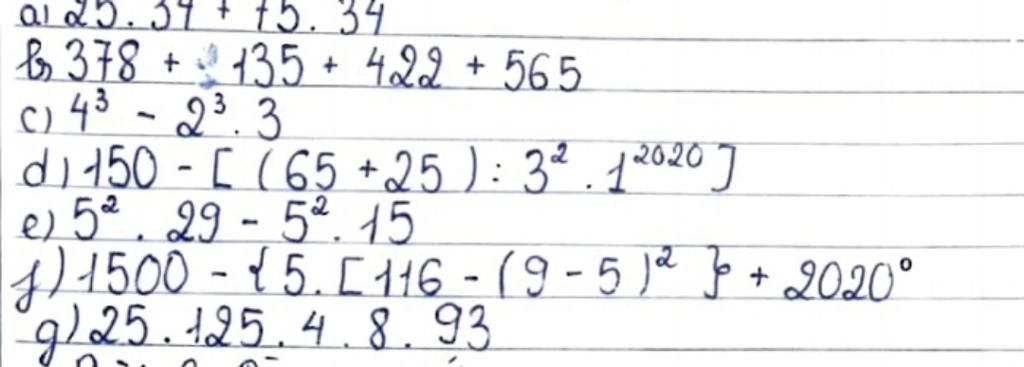 a) 25 . 34 + 75 . 34
b) 378 + 135 + 422 + 565
c) 4³ - 2³ . 3
d) 150 - [ ( 65 + 25 ) : 3² . 1²⁰²⁰ ]
e) 5² . 29 - 5² . 15
f) 1500 - { 5 . [ 116 - ( 9 - 5 )² } + 2020⁰
g) 25 . 125 . 4 . 8 . 93